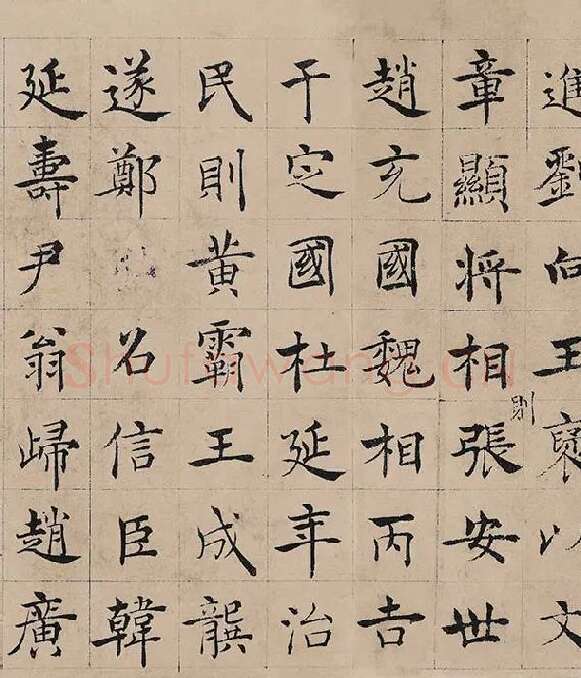 進劉向王襃以文
章顯將相張安世
則
趙充國魏相丙吉
于定國杜延年治
民則黃霸王成龔
遂鄭召信臣韓
延壽尹翁歸趙廣
Shufawang.CN